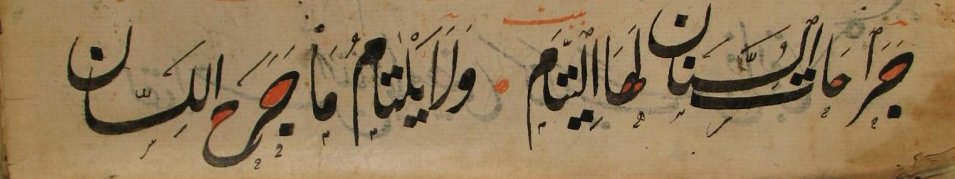 جَرَاحَاتُ السِّنَانِ لَهَا الْتِيَامُ وَلَا يَلْتَامُ مَا جَرَحَ اللِّسَانُ